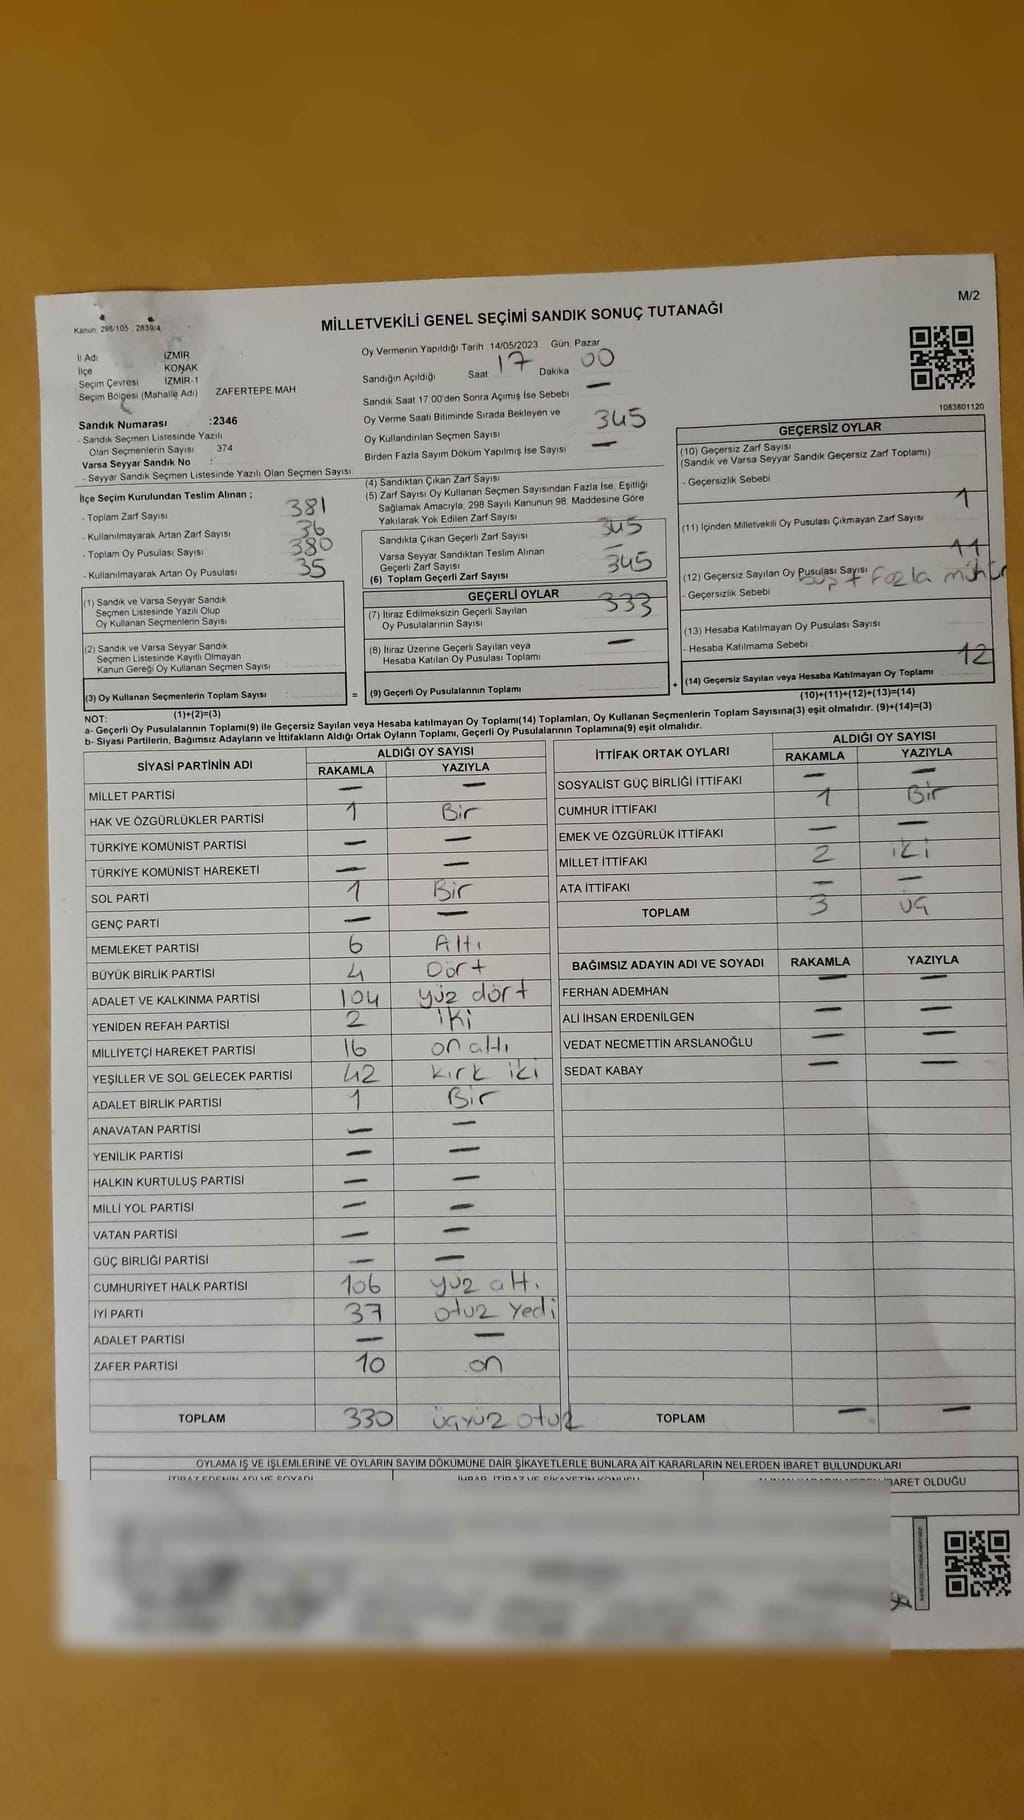 M/2
Kanun: 298/105 , 2839/4
MİLLETVEKİLİ GENEL SEÇİMİ SANDIK SONUÇ TUTANAĞI
İl Adı İZMİR
İlçe KONAK
Seçim Çevresi İZMİR-1
Seçim Bölgesi (Mahalle Adı) ZAFERTEPE MAH
Sandık Numarası :2346
- Sandık Seçmen Listesinde Yazılı
Olan Seçmenlerin Sayısı 374
Varsa Seyyar Sandık No :
- Seyyar Sandık Seçmen Listesinde Yazılı Olan Seçmen Sayısı
İlçe Seçim Kurulundan Teslim Alınan ;
- Toplam Zarf Sayısı 381
- Kullanılmayarak Artan Zarf Sayısı 36
- Toplam Oy Pusulası Sayısı 380
- Kullanılmayarak Artan Oy Pusulası 35
(1) Sandık ve Varsa Seyyar Sandık
Seçmen Listesinde Yazılı Olup
Oy Kullanan Seçmenlerin Sayısı
(2) Sandık ve Varsa Seyyar Sandık
Seçmen Listesinde Kayıtlı Olmayan
Kanun Gereği Oy Kullanan Seçmen Sayısı
(3) Oy Kullanan Seçmenlerin Toplam Sayısı
(1)+(2)=(3)
Oy Vermenin Yapıldığı Tarih 14/05/2023 Gün: Pazar
Sandığın Açıldığı Saat 17 Dakika 00
Sandık Saat 17:00'den Sonra Açımış İse Sebebi : —
Oy Verme Saati Bitiminde Sırada Bekleyen ve
Oy Kullandırılan Seçmen Sayısı 345
Birden Fazla Sayım Döküm Yapılmış İse Sayısı —
(4) Sandıktan Çıkan Zarf Sayısı
(5) Zarf Sayısı Oy Kullanan Seçmen Sayısından Fazla İse, Eşitliği
Sağlamak Amacıyla, 298 Sayılı Kanunun 98. Maddesine Göre
Yakılarak Yok Edilen Zarf Sayısı
Sandıkta Çıkan Geçerli Zarf Sayısı 345
Varsa Seyyar Sandıktan Teslim Alınan
Geçerli Zarf Sayısı —
(6) Toplam Geçerli Zarf Sayısı 345
GEÇERLİ OYLAR
(7) İtiraz Edilmeksizin Geçerli Sayılan
Oy Pusulalarının Sayısı 333
(8) İtiraz Üzerine Geçerli Sayılan veya
Hesaba Katılan Oy Pusulası Toplamı —
= (9) Geçerli Oy Pusulalarının Toplamı
1063801120
GEÇERSİZ OYLAR
(10) Geçersiz Zarf Sayısı
(Sandık ve Varsa Seyyar Sandık Geçersiz Zarf Toplamı)
- Geçersizlik Sebebi
1
(11) İçinden Milletvekili Oy Pusulası Çıkmayan Zarf Sayısı
11
(12) Geçersiz Sayılan Oy Pusulası Sayısı
- Geçersizlik Sebebi + fazla mühür
(13) Hesaba Katılmayan Oy Pusulası Sayısı
- Hesaba Katılmama Sebebi :
12
+ (14) Geçersiz Sayılan veya Hesaba Katılmayan Oy Toplamı
(10)+(11)+(12)+(13)=(14)
NOT:
a- Geçerli Oy Pusulalarının Toplamı(9) ile Geçersiz Sayılan veya Hesaba katılmayan Oy Toplamı(14) Toplamları, Oy Kullanan Seçmenlerin Toplam Sayısına(3) eşit olmalıdır. (9)+(14)=(3)
b- Siyasi Partilerin, Bağımsız Adayların ve İttifakların Aldığı Ortak Oyların Toplamı, Geçerli Oy Pusulalarının Toplamına(9) eşit olmalıdır.
SİYASİ PARTİNİN ADI ALDIĞI OY SAYISI
RAKAMLA YAZIYLA
MİLLET PARTİSİ — —
HAK VE ÖZGÜRLÜKLER PARTİSİ 1 Bir
TÜRKİYE KOMÜNİST PARTİSİ — —
TÜRKİYE KOMÜNİST HAREKETİ — —
SOL PARTİ 1 Bir
GENÇ PARTİ — —
MEMLEKET PARTİSİ 6 Altı
BÜYÜK BİRLİK PARTİSİ 4 Dört
ADALET VE KALKINMA PARTİSİ 104 yüz dört
YENİDEN REFAH PARTİSİ 2 iki
MİLLİYETÇİ HAREKET PARTİSİ 16 on altı
YEŞİLLER VE SOL GELECEK PARTİSİ 42 kırk iki
ADALET BİRLİK PARTİSİ 1 Bir
ANAVATAN PARTİSİ — —
YENİLİK PARTİSİ — —
HALKIN KURTULUŞ PARTİSİ — —
MİLLİ YOL PARTİSİ — —
VATAN PARTİSİ — —
GÜÇ BİRLİĞİ PARTİSİ — —
CUMHURİYET HALK PARTİSİ 106 yüz altı
İYİ PARTİ 37 otuz yedi
ADALET PARTİSİ — —
ZAFER PARTİSİ 10 on
TOPLAM 330 üçyüz otuz
İTTİFAK ORTAK OYLARI ALDIĞI OY SAYISI
RAKAMLA YAZIYLA
SOSYALİST GÜÇ BİRLİĞİ İTTİFAKI — —
CUMHUR İTTİFAKI 1 Bir
EMEK VE ÖZGÜRLÜK İTTİFAKI — —
MİLLET İTTİFAKI 2 iki
ATA İTTİFAKI — —
TOPLAM 3 üç
BAĞIMSIZ ADAYIN ADI VE SOYADI RAKAMLA YAZIYLA
FERHAN ADEMHAN — —
ALİ İHSAN ERDENİLGEN — —
VEDAT NECMETTİN ARSLANOĞLU — —
SEDAT KABAY — —
TOPLAM — —
OYLAMA İŞ VE İŞLEMLERİNE VE OYLARIN SAYIM DÖKÜMÜNE DAİR ŞİKAYETLERLE BUNLARA AİT KARARLARIN NELERDEN İBARET BULUNDUKLARI
İTİRAZ EDENİN ADI VE SOYADI İHBAR, İTİRAZ VE ŞİKAYETİN KONUSU İBARET OLDUĞU